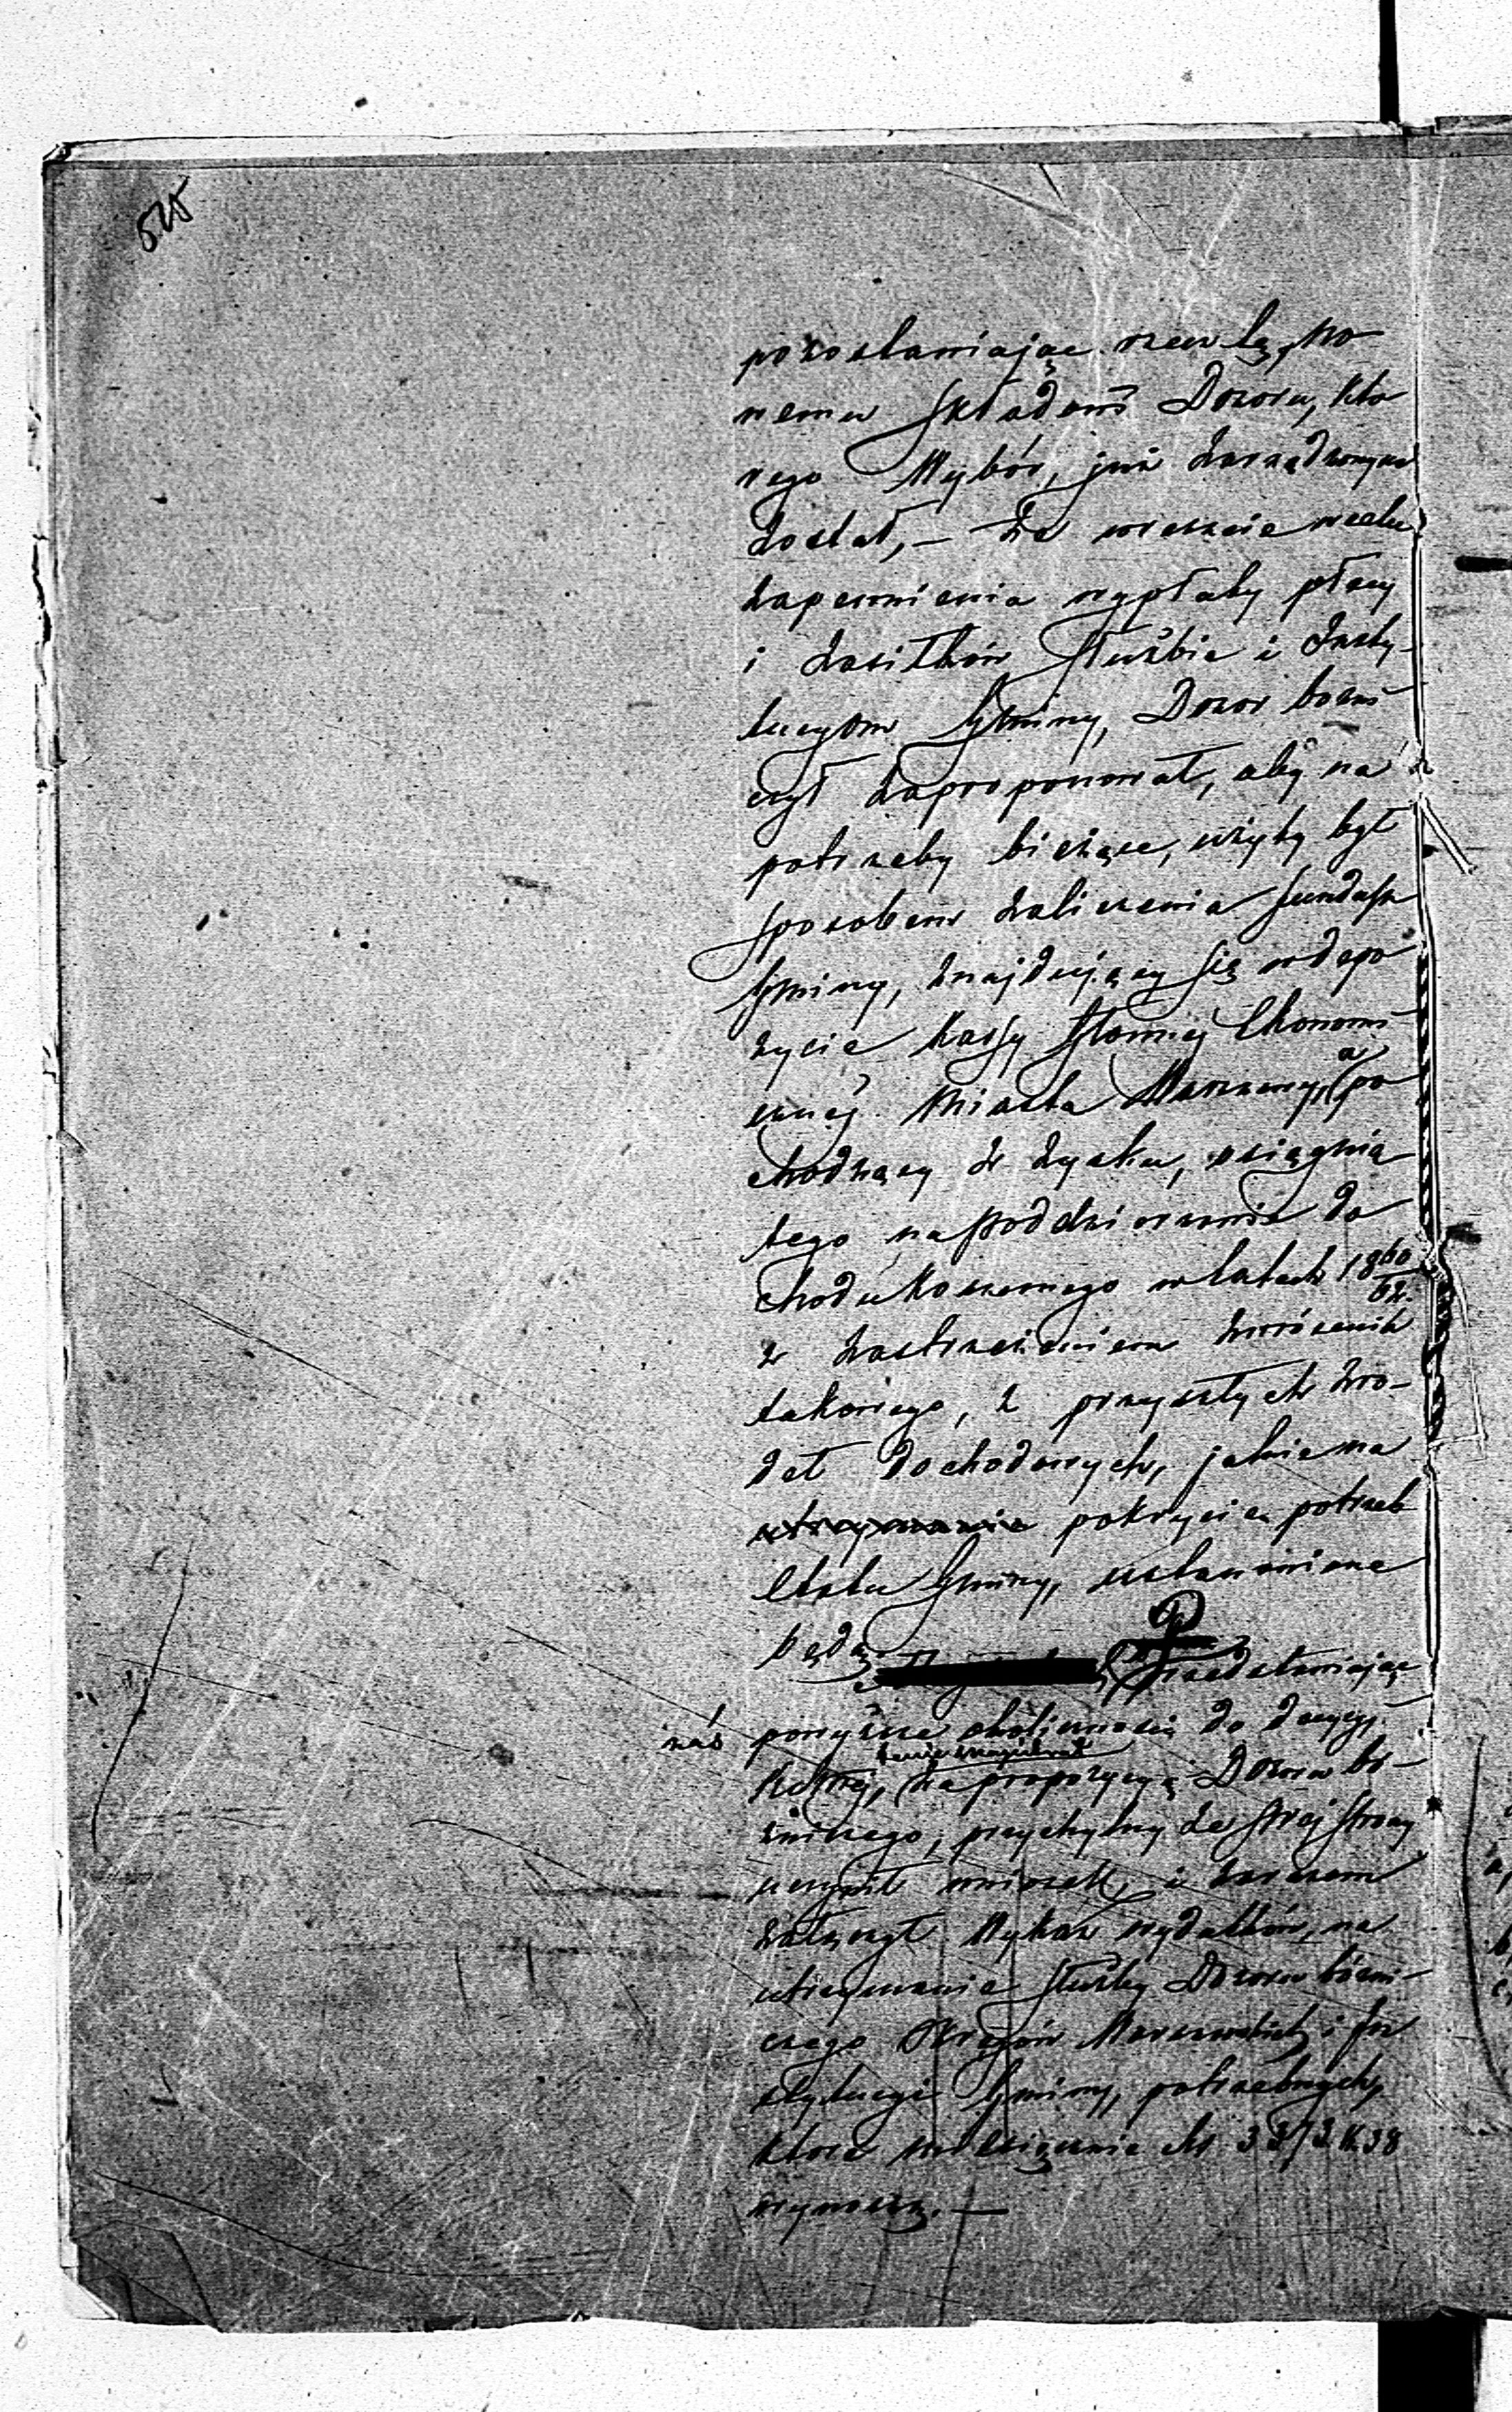 525
pozostawiając resztę, no
wemu składowi Dozoru, któ
rego Wybór, już zarządzonym
został, — że wreszcie w celu
zapewnienia wypłaty płacy
i zasiłków służbie i Insty-
tucyom Gminy, Dozor bożni
czył zaproponował, aby na
potrzeby bieżące, użyty był
sposobem zaliczenia fundusz
Gminy, znajdujący się w depo
zycie Kassy Głównej Ekonomi
cznej Miasta Warszawy, a po
chodzący z zysku, osiągnię
tego na poddzierżawie do
chodu koszernego w latach 18 60/62.
z zastrzeżeniem zwrócenia
takowego, z przyszłych źró-
deł dochodowych, jakie na
utrzymanie pokrycie potrzeb
Etatu Gminy, ustanowione
będą.
Przedstawiając
zaś powyższe okoliczności do decyzyi
tenże Magistrat
Kommissyi, na propozycyą Dozoru bó-
żniczego, przychylny ze swej strony
uczynił wniosek, i zarazem
załączył Wykaz wydatków, na
utrzymanie służby Dozoru bóżni-
czego Okręgów Warszawskich i In
stytucyi Gminy, potrzebnych,
które miesięcznie Rs 3373 k. 38
wynoszą. —